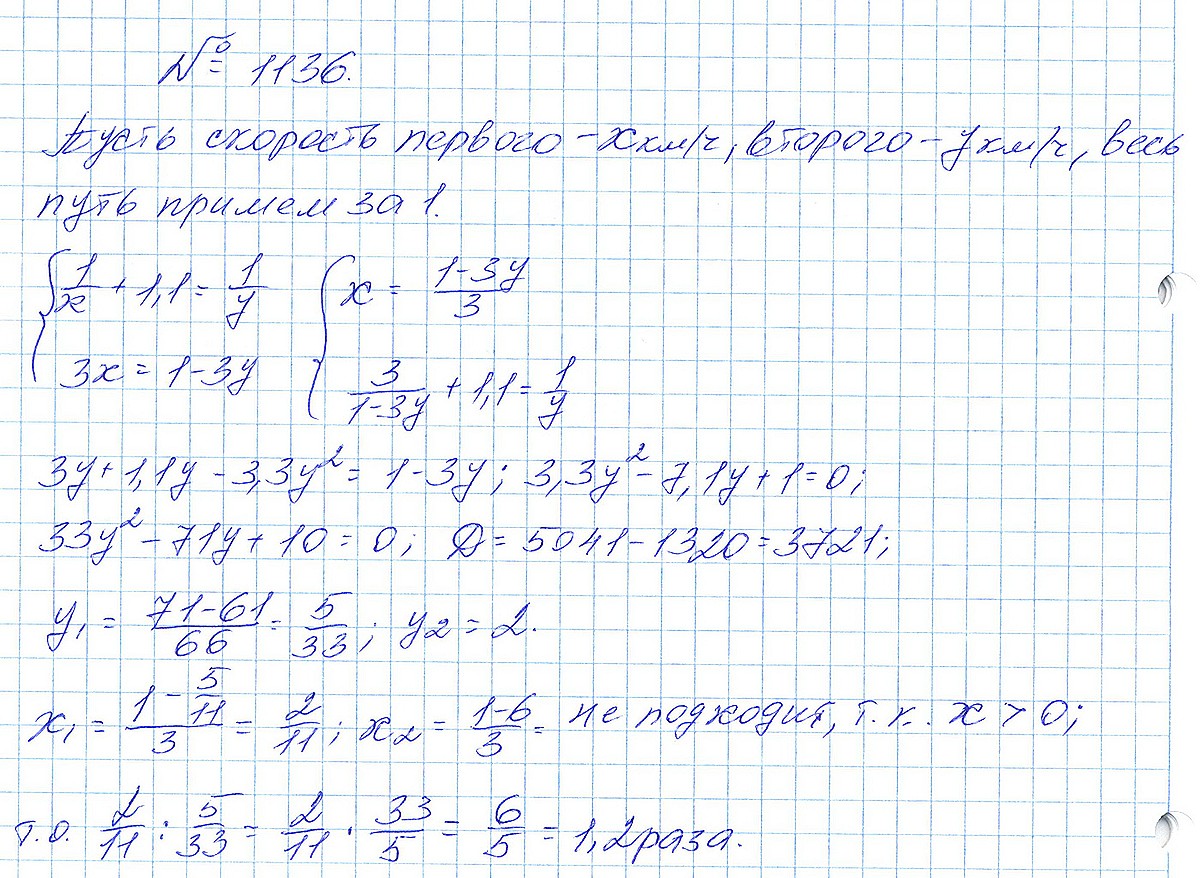 № 1136.
Пусть скорость первого – x км/ч, второго – y км/ч, весь
путь примем за 1.
{ 1/x + 1,1 = 1/y { x = (1-3y)/3
3x = 1-3y 3/(1-3y) + 1,1 = 1/y
3y + 1,1y - 3,3y² = 1-3y; 3,3y² - 7,1y + 1 = 0;
33y² - 71y + 10 = 0; D = 5041 - 1320 = 3721;
y₁ = (71-61)/66 = 5/33; y₂ = 2.
x₁ = (1 - 5/11)/3 = 2/11; x₂ = (1-6)/3 = не подходит, т.к. x > 0;
т.о. 2/11 : 5/33 = 2/11 · 33/5 = 6/5 = 1,2 раза.